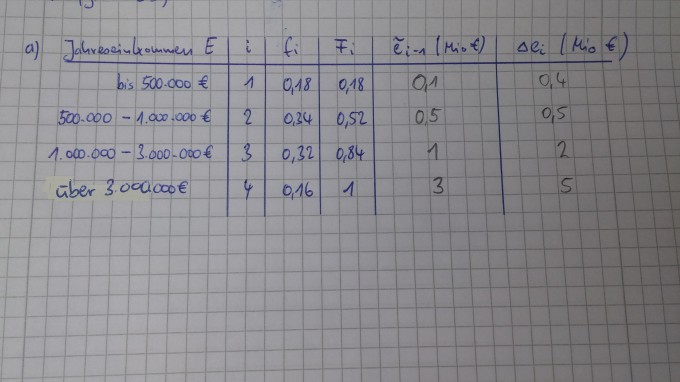 a) Jahreseinkommen E i fi Fi ẽi-1 (Mio €) Δei (Mio €)
bis 500.000 € 1 0,18 0,18 0,1 0,4
500.000 - 1.000.000 € 2 0,34 0,52 0,5 0,5
1.000.000 - 3.000.000 € 3 0,32 0,84 1 2
über 3.000.000 € 4 0,16 1 3 5